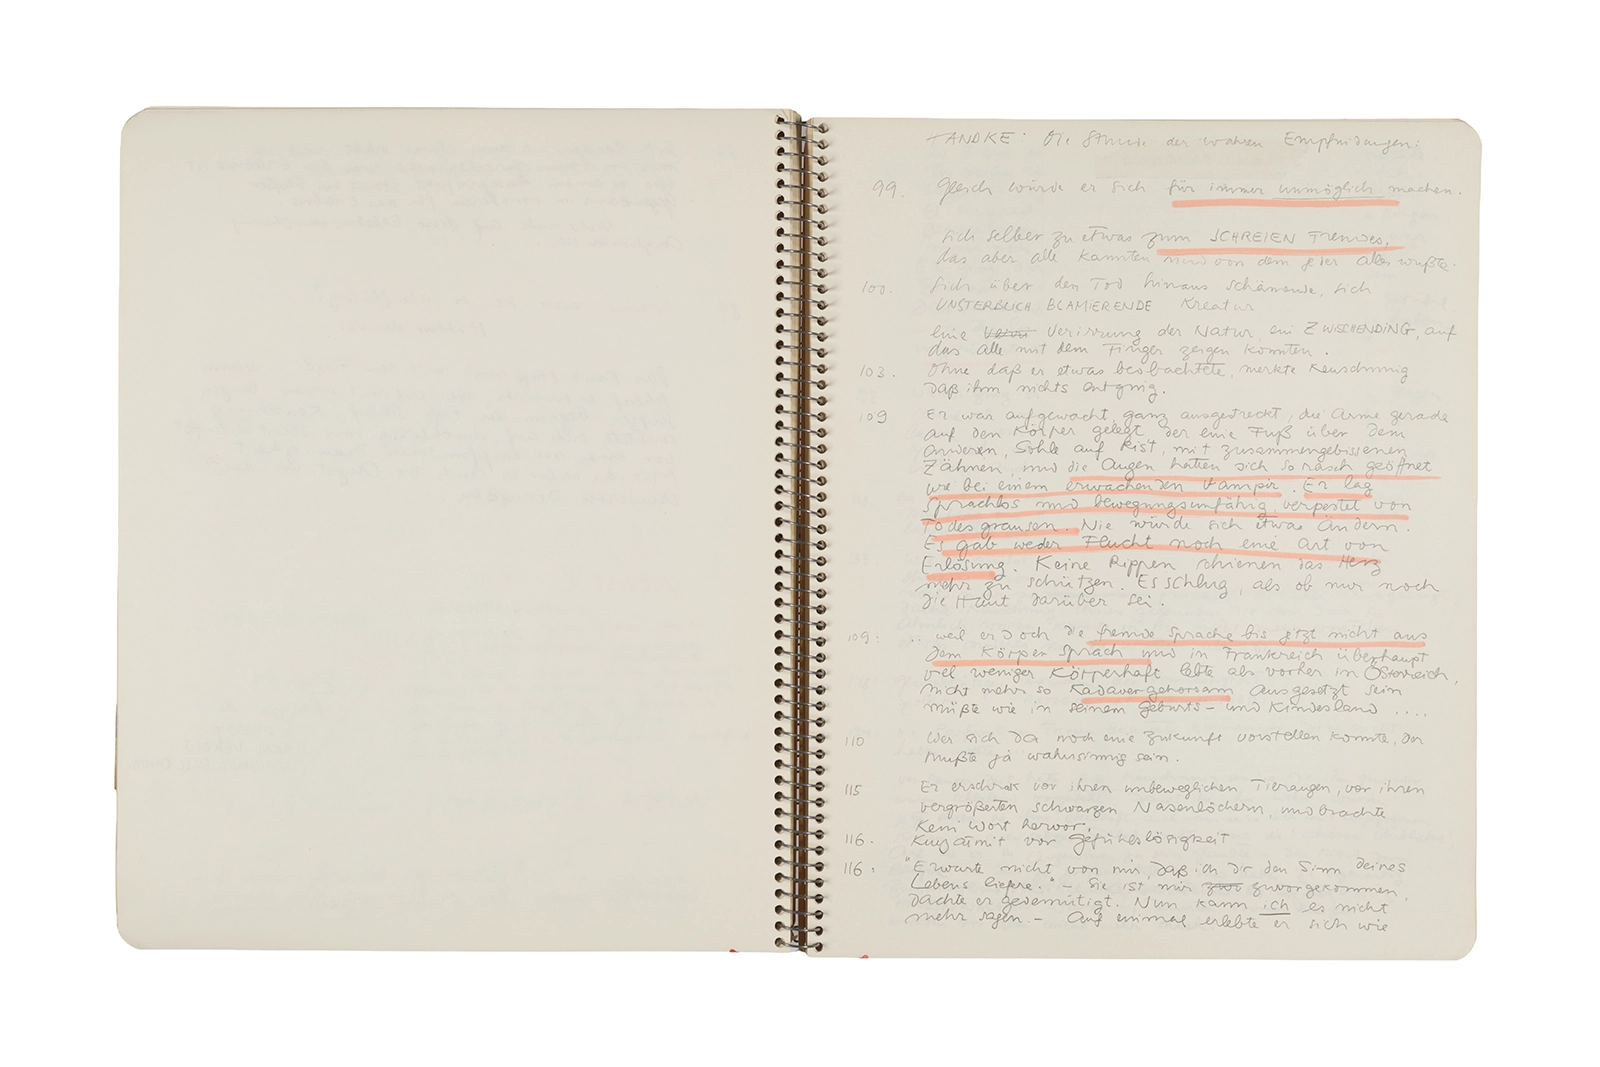 HANDKE: Die Stunde der wahren Empfindungen:
99. Gleich würde er sich für immer unmöglich machen.
sich selber zu etwas zum SCHREIEN Fremdes,
das aber alle kannten und von dem jeder alles wußte.
100. Sich über den Tod hinaus schämende, sich
UNSTERBLICH BLAMIERENDE Kreatur
eine Verirrung der Natur, ein ZWISCHENDING, auf
das alle mit dem Finger zeigen konnten.
103. Ohne daß er etwas beobachtete, merkte Keuschnig
daß ihm nichts entging.
109 Er war aufgewacht, ganz ausgestreckt, die Arme gerade
auf den Körper gelegt der eine Fuß über dem
anderen, Sohle auf Rist, mit zusammengebissenen
Zähnen, und die Augen hatten sich so rasch geöffnet
wie bei einem erwachenden Vampir. Er lag
sprachlos und bewegungsunfähig, verpestet von
Todesgrausen. Nie würde sich etwas ändern.
Es gab weder Flucht noch eine Art von
Erlösung. Keine Rippen schienen das Herz
mehr zu schützen. Es schlug, als ob nur noch
die Haut darüber sei.
109: .. weil er doch die fremde Sprache bis jetzt nicht aus
dem Körper sprach und in Frankreich überhaupt
viel weniger körperhaft lebte als vorher in Österreich,
nicht mehr so Kadavergehorsam ausgesetzt sein
müßte wie in seinem Geburts- und Kindesland ....
110 Wer sich da noch eine Zukunft vorstellen konnte, der
mußte ja wahnsinnig sein.
115 Er erschrak vor ihren unbeweglichen Tieraugen, vor ihren
vergrößerten schwarzen Nasenlöchern, und brachte
kein Wort hervor.
116. Kurzatmit vor Gefühlslosigkeit
116: "Erwarte nicht von mir, daß ich dir den Sinn deines
Lebens liefere." – Sie ist mir zuvorgekommen,
dachte er gedemütigt. Nun kann ich es nicht
mehr sagen. – Auf einmal erlebte er sich wie